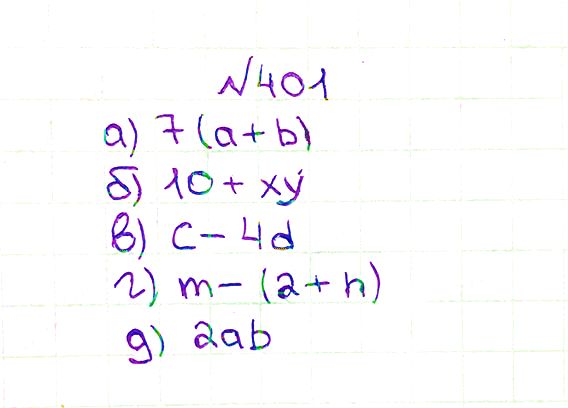 №401
а) 7(a+b)
б) 10+xy
в) c-4d
г) m-(2+n)
д) 2ab